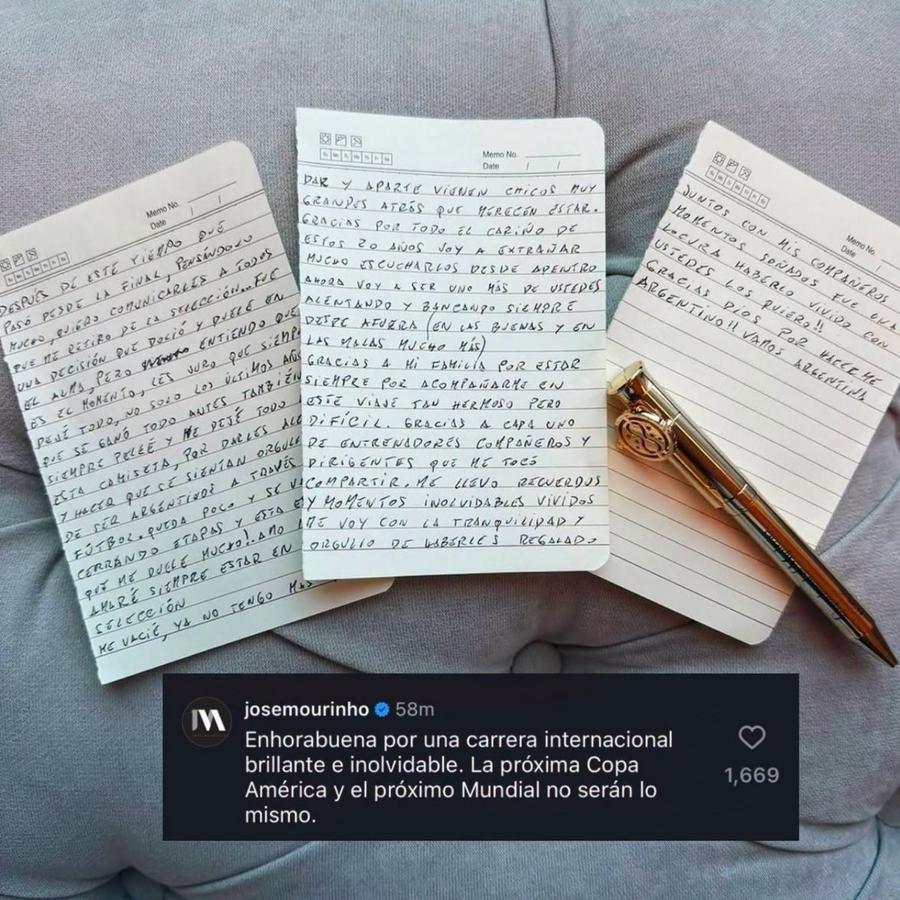 Memo No.
Date / /
DESPUÉS DE ESTE TIEMPO QUE
PASÓ DESDE LA FINAL, PENSÁNDOLO
MUCHO, QUIERO COMUNICARLES A TODOS
QUE ME RETIRO DE LA SELECCIÓN... FUE
UNA DECISIÓN QUE DOLIÓ Y DUELE EN
EL ALMA, PERO ENTIENDO QUE
ES EL MOMENTO, LES JURO QUE SIEMPR
DEJÉ TODO, NO SOLO LOS ÚLTIMOS AÑOS
QUE SE GANÓ TODO ANTES TAMBIÉN
SIEMPRE PELEÉ Y DEJÉ TODO
ESTA CAMISETA, POR DARLES
Y HACER QUE SE SIENTAN ORGULL
DE SER ARGENTINOS A TRAVÉS
FÚTBOL. QUEDA POCO Y SE V
CERRANDO ETAPAS Y ESTA E
QUE ME DUELE MUCHO! AMO
AMARÉ SIEMPRE ESTAR EN
SELECCIÓN
ME VACIÉ, YA NO TENGO MÁS
Memo No.
Date / /
DAR Y APARTE VIENEN CHICOS MUY
GRANDES ATRÁS QUE MERECEN ESTAR.
GRACIAS POR TODO EL CARIÑO DE
ESTOS 20 AÑOS VOY A EXTRAÑAR
MUCHO ESCUCHARLOS DESDE ADENTRO
AHORA VOY A SER UNO MÁS DE USTEDES
ALENTANDO Y BANCANDO SIEMPRE
DESDE AFUERA (EN LAS BUENAS Y EN
LAS MALAS MUCHO MÁS)
GRACIAS A MI FAMILIA POR ESTAR
SIEMPRE POR ACOMPAÑARME EN
ESTE VIAJE TAN HERMOSO PERO
DIFÍCIL. GRACIAS A CADA UNO
DE ENTRENADORES COMPAÑEROS Y
DIRIGENTES QUE ME TOCÓ
COMPARTIR. ME LLEVO RECUERDOS
Y MOMENTOS INOLVIDABLES VIVIDOS
ME VOY CON LA TRANQUILIDAD Y
ORGULLO DE HABERLES REGALADO
Memo No.
Date / /
JUNTOS CON MIS COMPAÑEROS
MOMENTOS SOÑADOS FUE UNA
LOCURA HABERLO VIVIDO CON
USTEDES LOS QUIERO!!
GRACIAS DIOS POR HACERME
ARGENTINO!! VAMOS ARGENTINA
josemourinho 58m
Enhorabuena por una carrera internacional
brillante e inolvidable. La próxima Copa
América y el próximo Mundial no serán lo
mismo.
1,669